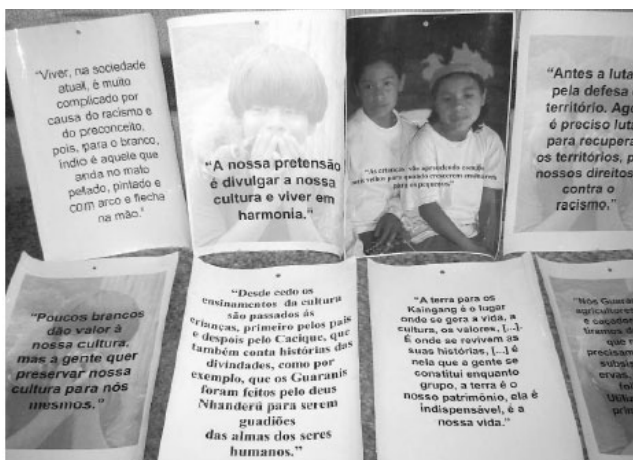 "Viver, na sociedade
atual, é muito
complicado por
causa do racismo e
do preconceito,
pois, para o branco,
índio é aquele que
anda no mato
pelado, pintado e
com arco e flecha
na mão."
"A nossa pretensão
é divulgar a nossa
cultura e viver em
harmonia."
"As crianças vão aprendendo
para os pequenos."
"Antes a luta
pela defesa
território. Ago
é preciso luta
para recupera
os territórios, p
nossos direitos
contra o
racismo."
"Poucos brancos
dão valor à
nossa cultura,
mas a gente quer
preservar nossa
cultura para nós
mesmos."
"Desde cedo os
ensinamentos da cultura
são passados ás
crianças, primeiro pelos pais
e despois pelo Cacique, que
também conta histórias das
divindades, como por
exemplo, que os Guaranis
foram feitos pelo deus
Nhanderú para serem
guadiões
das almas dos seres
humanos."
"A terra para os
Kaingang é o lugar
onde se gera a vida, a
cultura, os valores, [...].
É onde se revivem as
suas histórias, [...] é
nela que a gente se
constitui enquanto
grupo, a terra é o
nosso patrimônio, ela é
indispensável, é a
nossa vida."
"Nós Guara
agricultores
e caçado
tiramos d
que n
precisam
subsis
ervas,
Utili